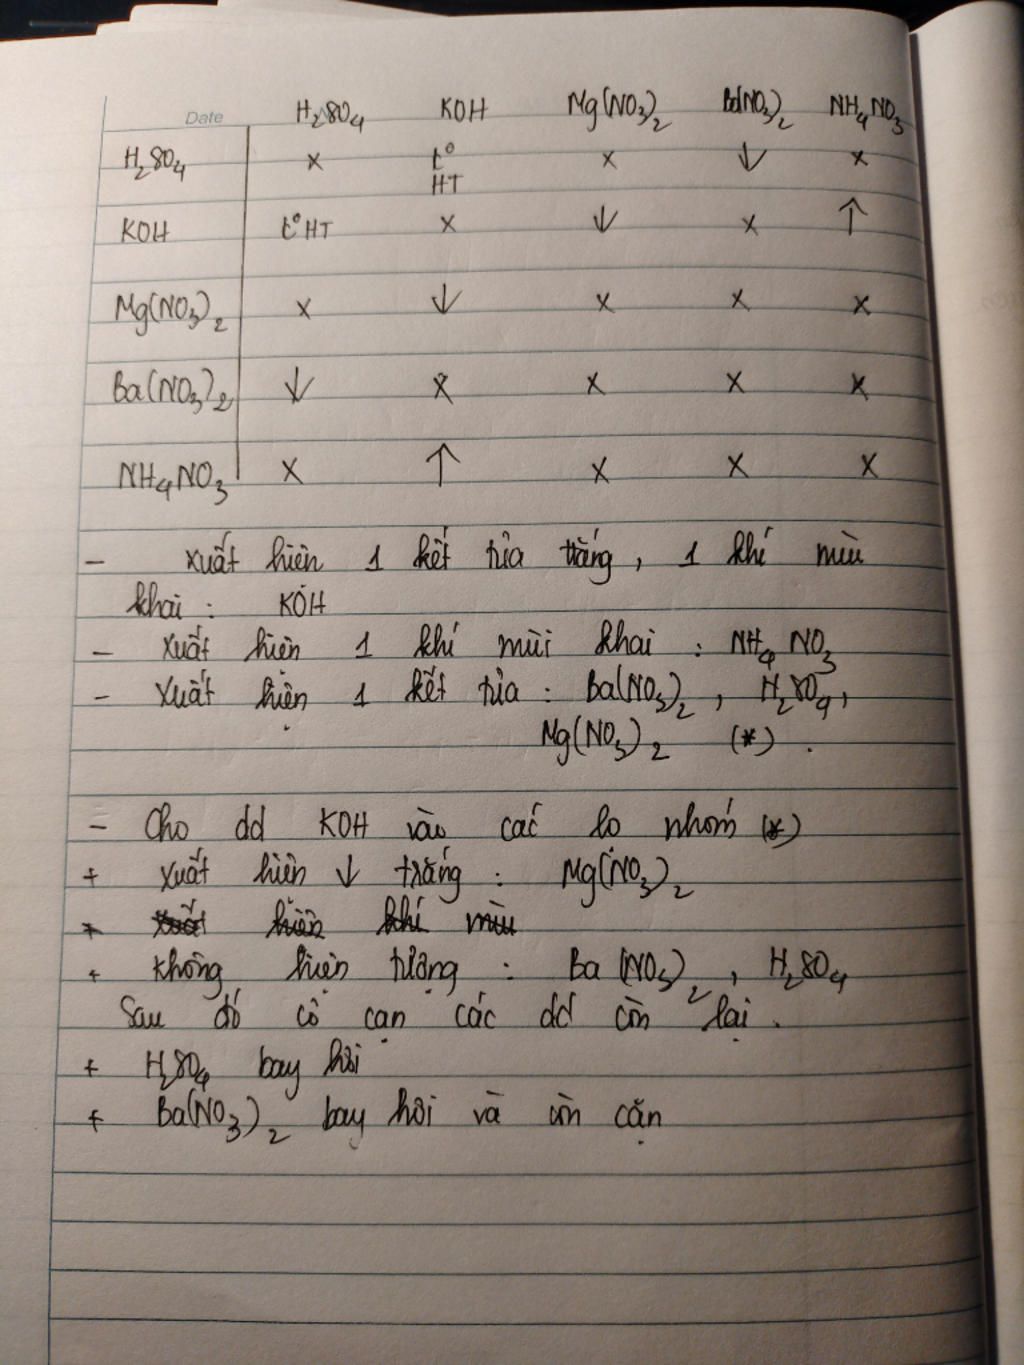 Date H₂SO₄ KOH Mg(NO₃)₂ Ba(NO₃)₂ NH₄NO₃
H₂SO₄ x t° HT x ↓ x
KOH t° HT x ↓ x ↑
Mg(NO₃)₂ x ↓ x x x
Ba(NO₃)₂ ↓ x x x x
NH₄NO₃ x ↑ x x x
- xuất hiện 1 kết tủa trắng, 1 khí mùi
khai : KOH
- xuất hiện 1 khí mùi khai : NH₄NO₃
- xuất hiện 1 kết tủa : Ba(NO₃)₂, H₂SO₄,
Mg(NO₃)₂ (*).
- Cho dd KOH vào các lọ nhóm (*)
+ xuất hiện ↓ trắng : Mg(NO₃)₂
+ xuất hiện khí mùi
+ không hiện tượng : Ba(NO₃)₂, H₂SO₄
Sau đó cô cạn các dd còn lại.
+ H₂SO₄ bay hơi
+ Ba(NO₃)₂ bay hơi và còn cặn